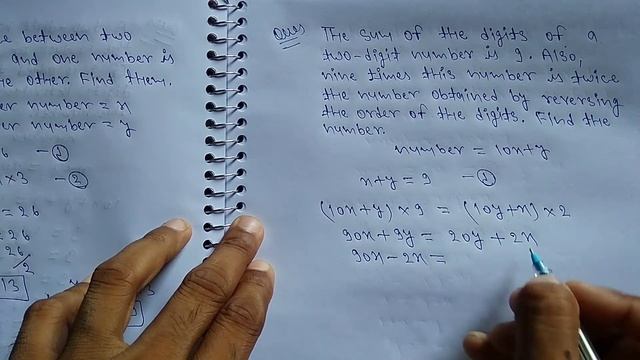 e between two
and one number is
e other. Find them.
er number = x
er number = y
6 - ①
x 3 - ②
= 26
= 26
26/2
13
Ques The sum of the digits of a
two-digit number is 9. Also,
nine times this number is twice
the number obtained by reversing
the order of the digits. Find the
number.
number = 10x+y
x+y = 9 - ①
(10x+y) x 9 = (10y+x) x 2
90x + 9y = 20y + 2x
90x - 2x =